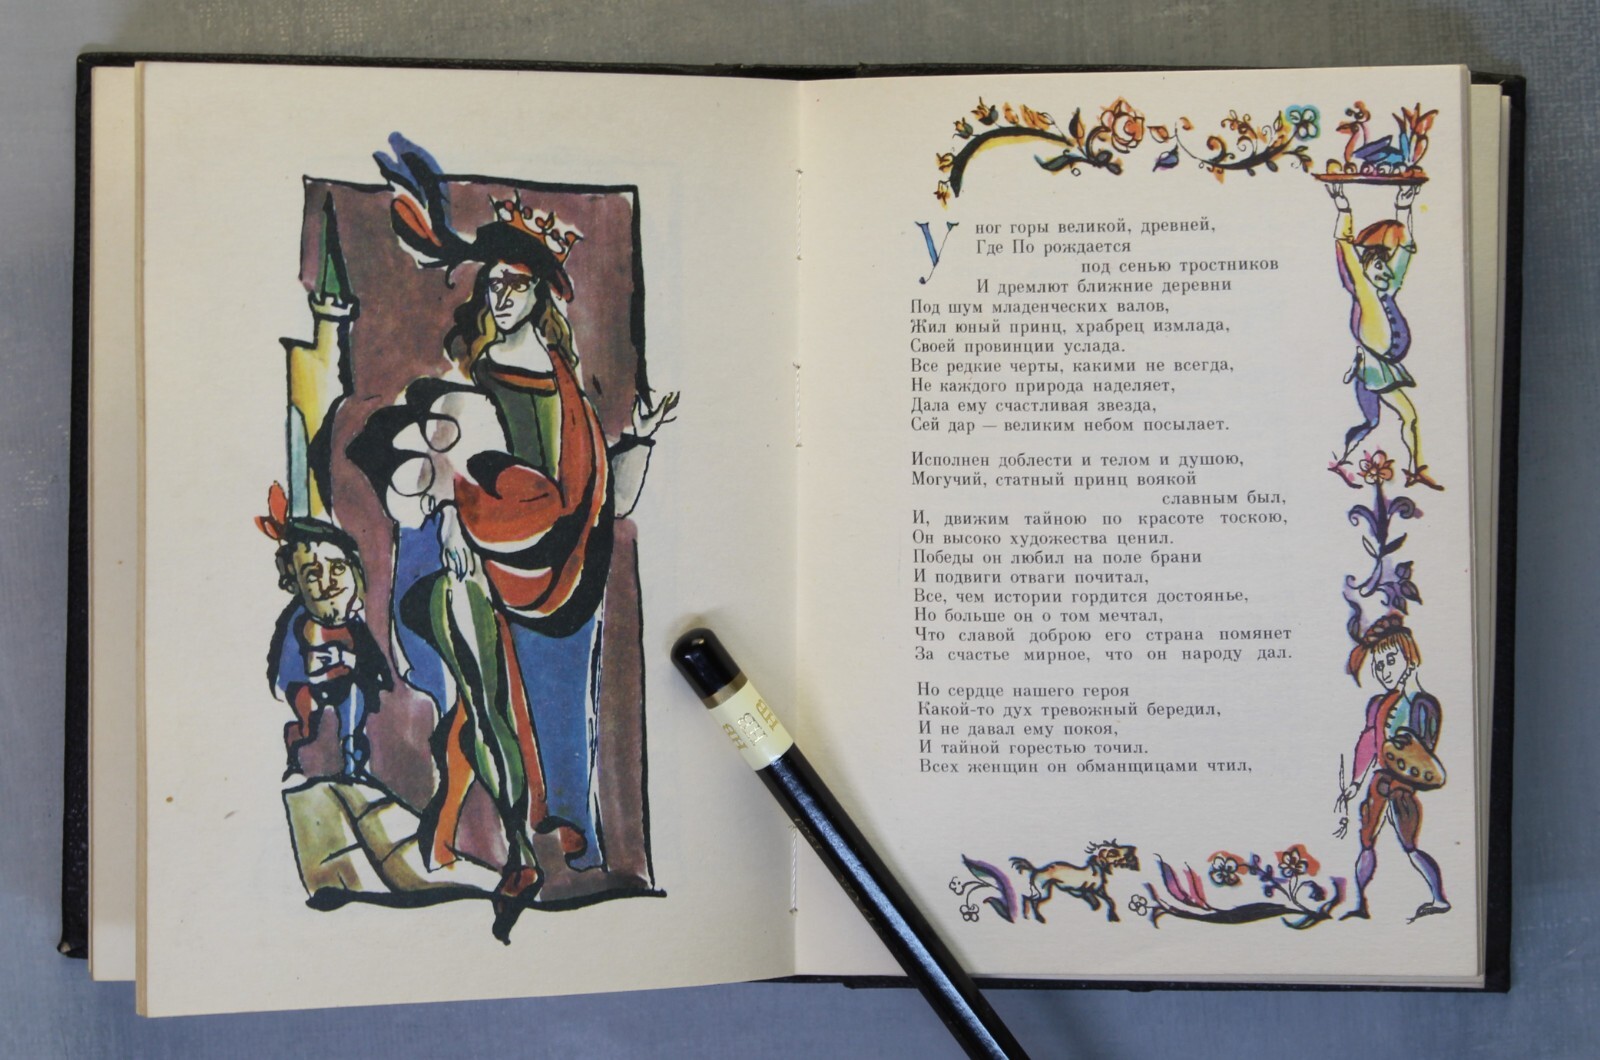 У ног горы великой, древней,
Где По рождается
под сенью тростников
И дремлют ближние деревни
Под шум младенческих валов,
Жил юный принц, храбрец измлада,
Своей провинции услада.
Все редкие черты, какими не всегда,
Не каждого природа наделяет,
Дала ему счастливая звезда,
Сей дар — великим небом посылает.
Исполнен доблести и телом и душою,
Могучий, статный принц воякой
славным был,
И, движим тайною по красоте тоскою,
Он высоко художества ценил.
Победы он любил на поле брани
И подвиги отваги почитал,
Все, чем истории гордится достоянье,
Но больше он о том мечтал,
Что славой доброю его страна помянет
За счастье мирное, что он народу дал.
Но сердце нашего героя
Какой-то дух тревожный бередил,
И не давал ему покоя,
И тайной горестью точил.
Всех женщин он обманщицами чтил,
HB
HB
HB